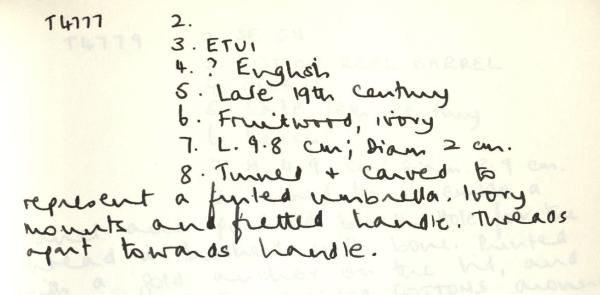 T4777 2.
3. ETUI
4. ? English
5. Late 19th century
6. Fruitwood, ivory
7. L. 9.8 cm; Diam 2 cm.
8. Turned + carved to
represent a furled umbrella. Ivory
mounts and fretted handle. Threads
apart towards handle.